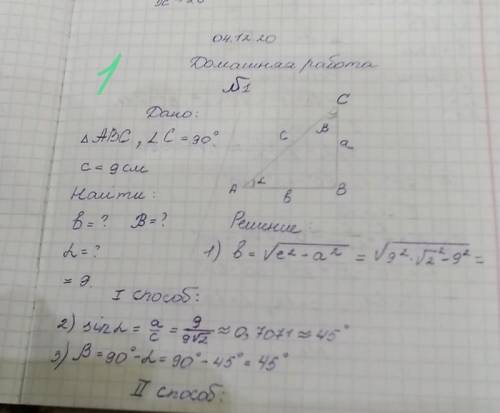 04.12.20
Домашняя работа
1
№1
Дано:
△ABC, ∠C = 90°
c = 9см
Найти:
b = ? B = ?
α = ?
C
c
B
a
A
α
b
B
Решение:
1) b = √c² - a² = √9² · √2² - 9² =
= 9.
I способ:
2) sin α = a/c = 9/9√2 ≈ 0,7071 ≈ 45°
3) B = 90° - α = 90° - 45° = 45°
II способ: